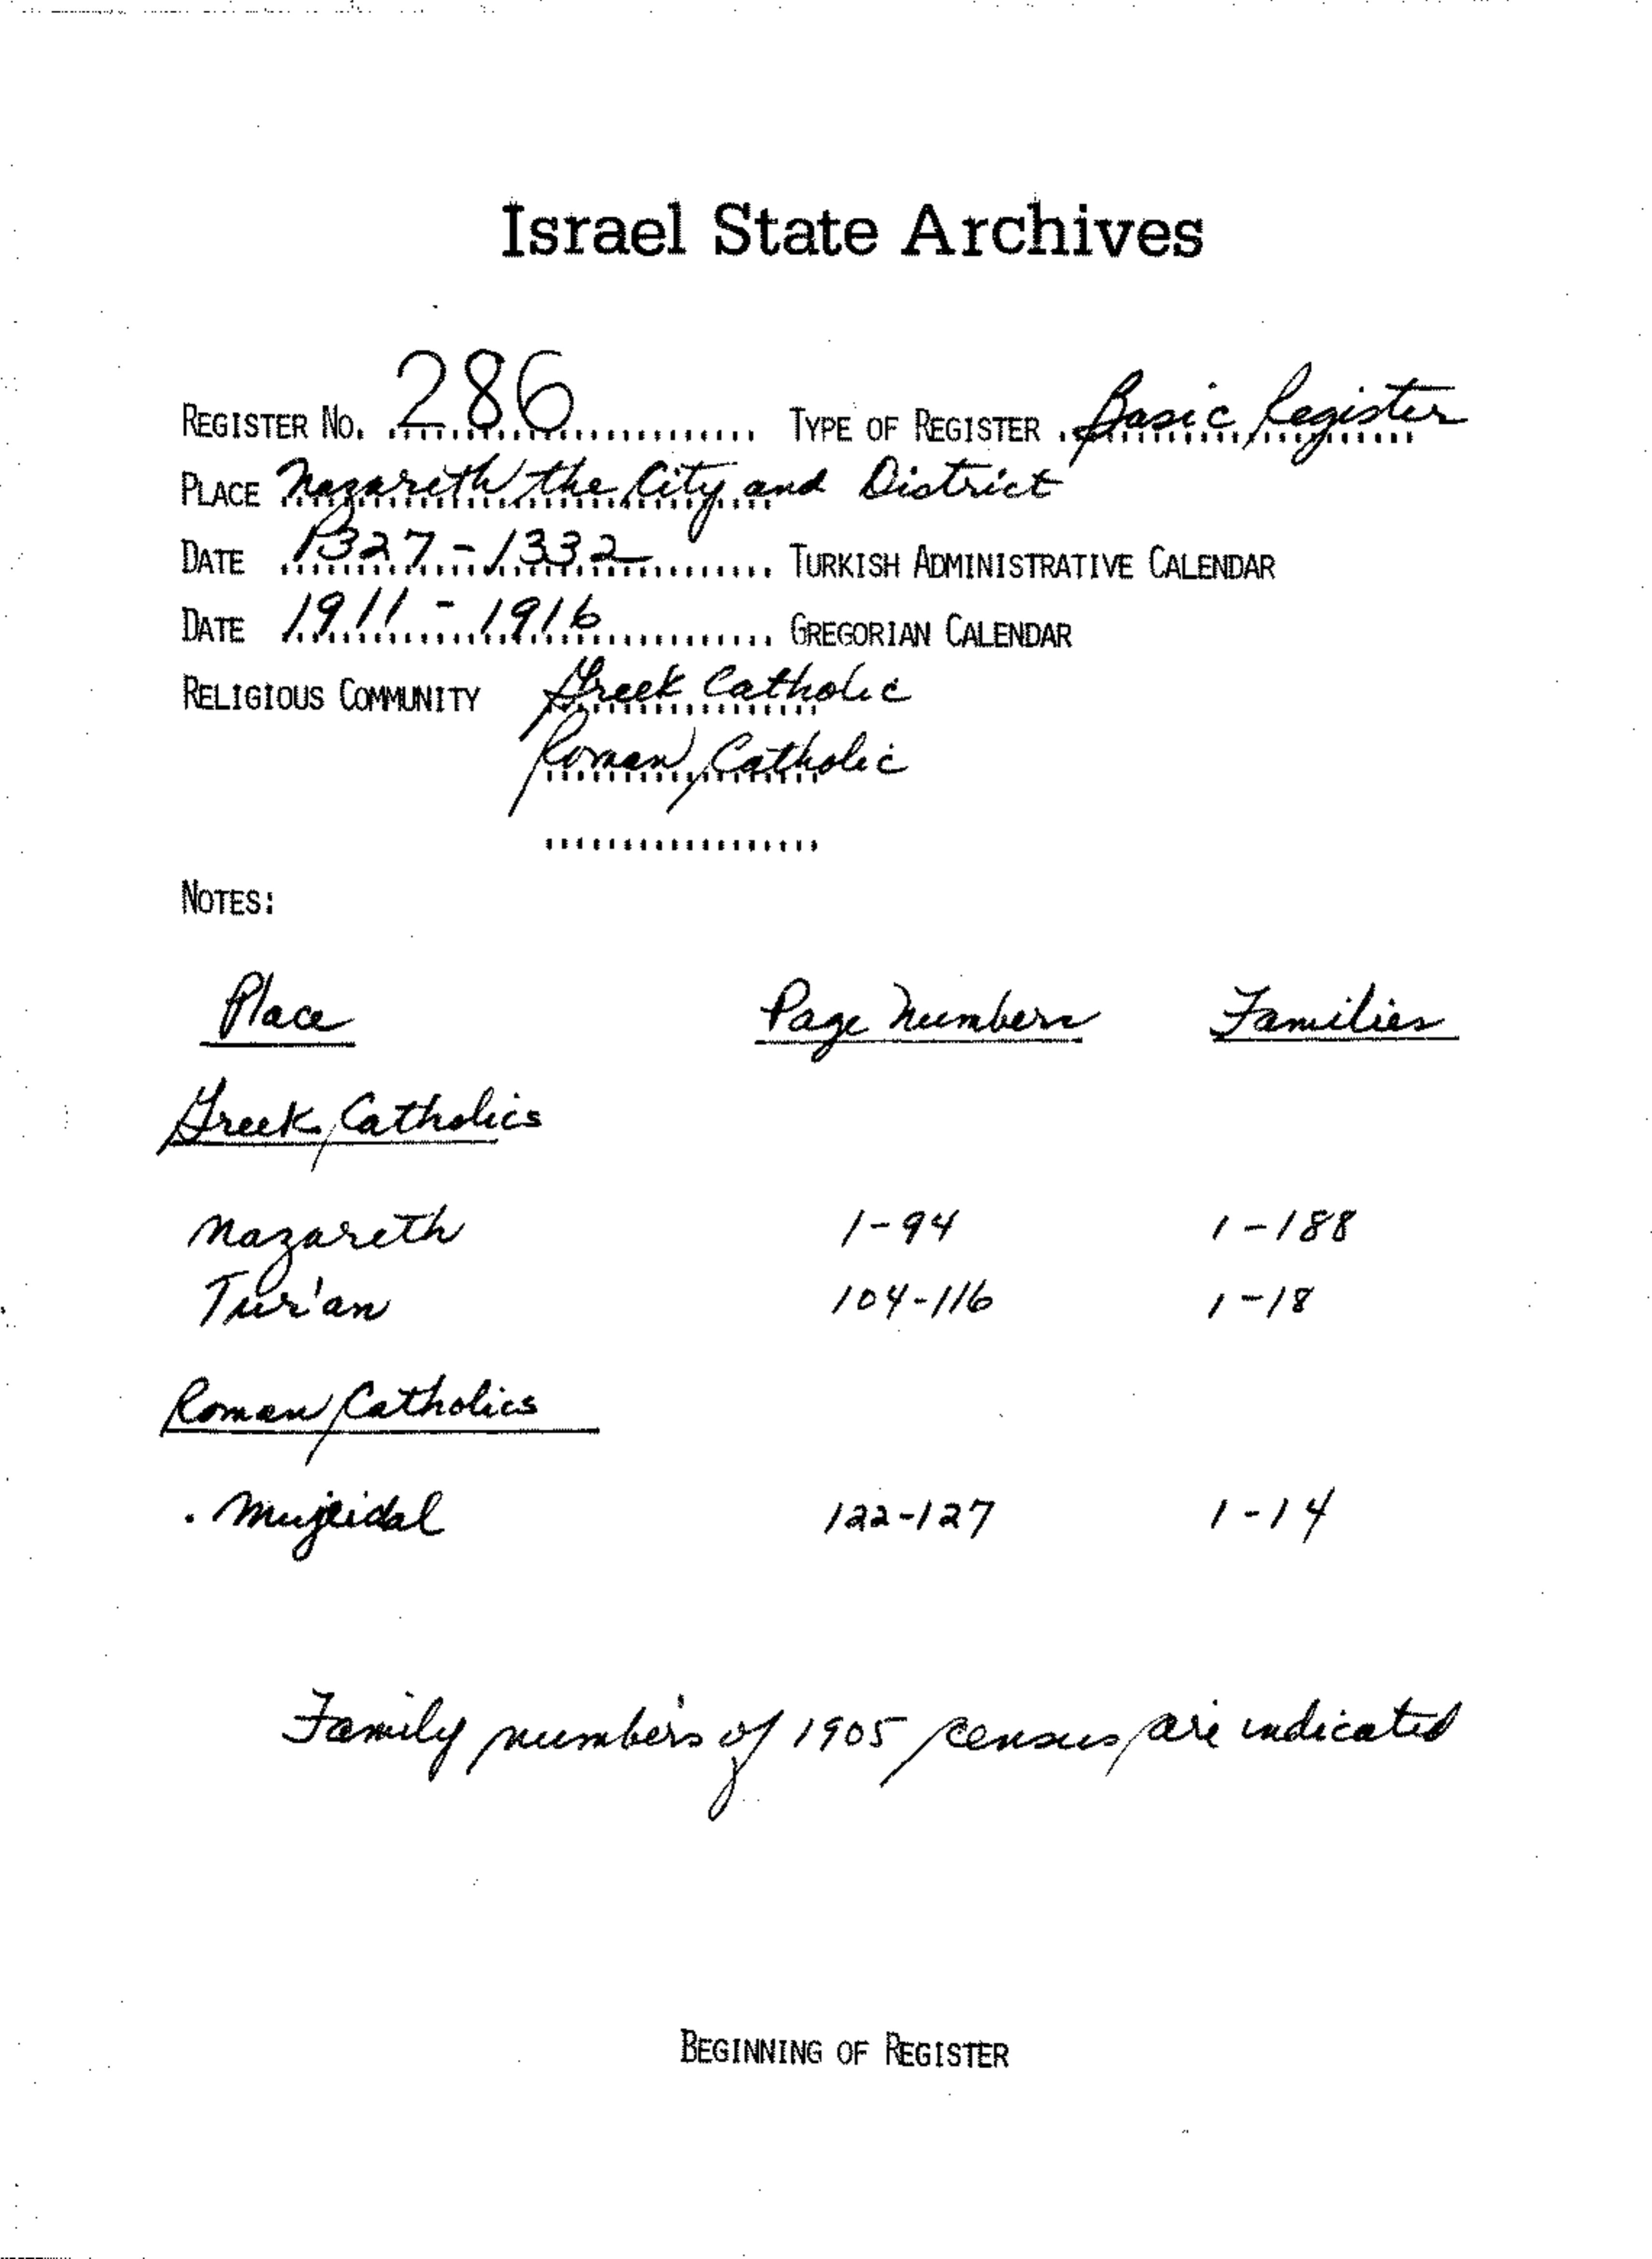 Israel State Archives
REGISTER NO. 286 TYPE OF REGISTER Basic Register
PLACE Nazareth the City and District
DATE 1327-1332 TURKISH ADMINISTRATIVE CALENDAR
DATE 1911-1916 GREGORIAN CALENDAR
RELIGIOUS COMMUNITY Greek Catholic
Roman Catholic
NOTES:
Place Page Numbers Families
Greek Catholics
Nazareth 1-94 1-188
Tur'an 104-116 1-18
Roman Catholics
Mujeidal 122-127 1-14
Family numbers of 1905 census are indicated
BEGINNING OF REGISTER